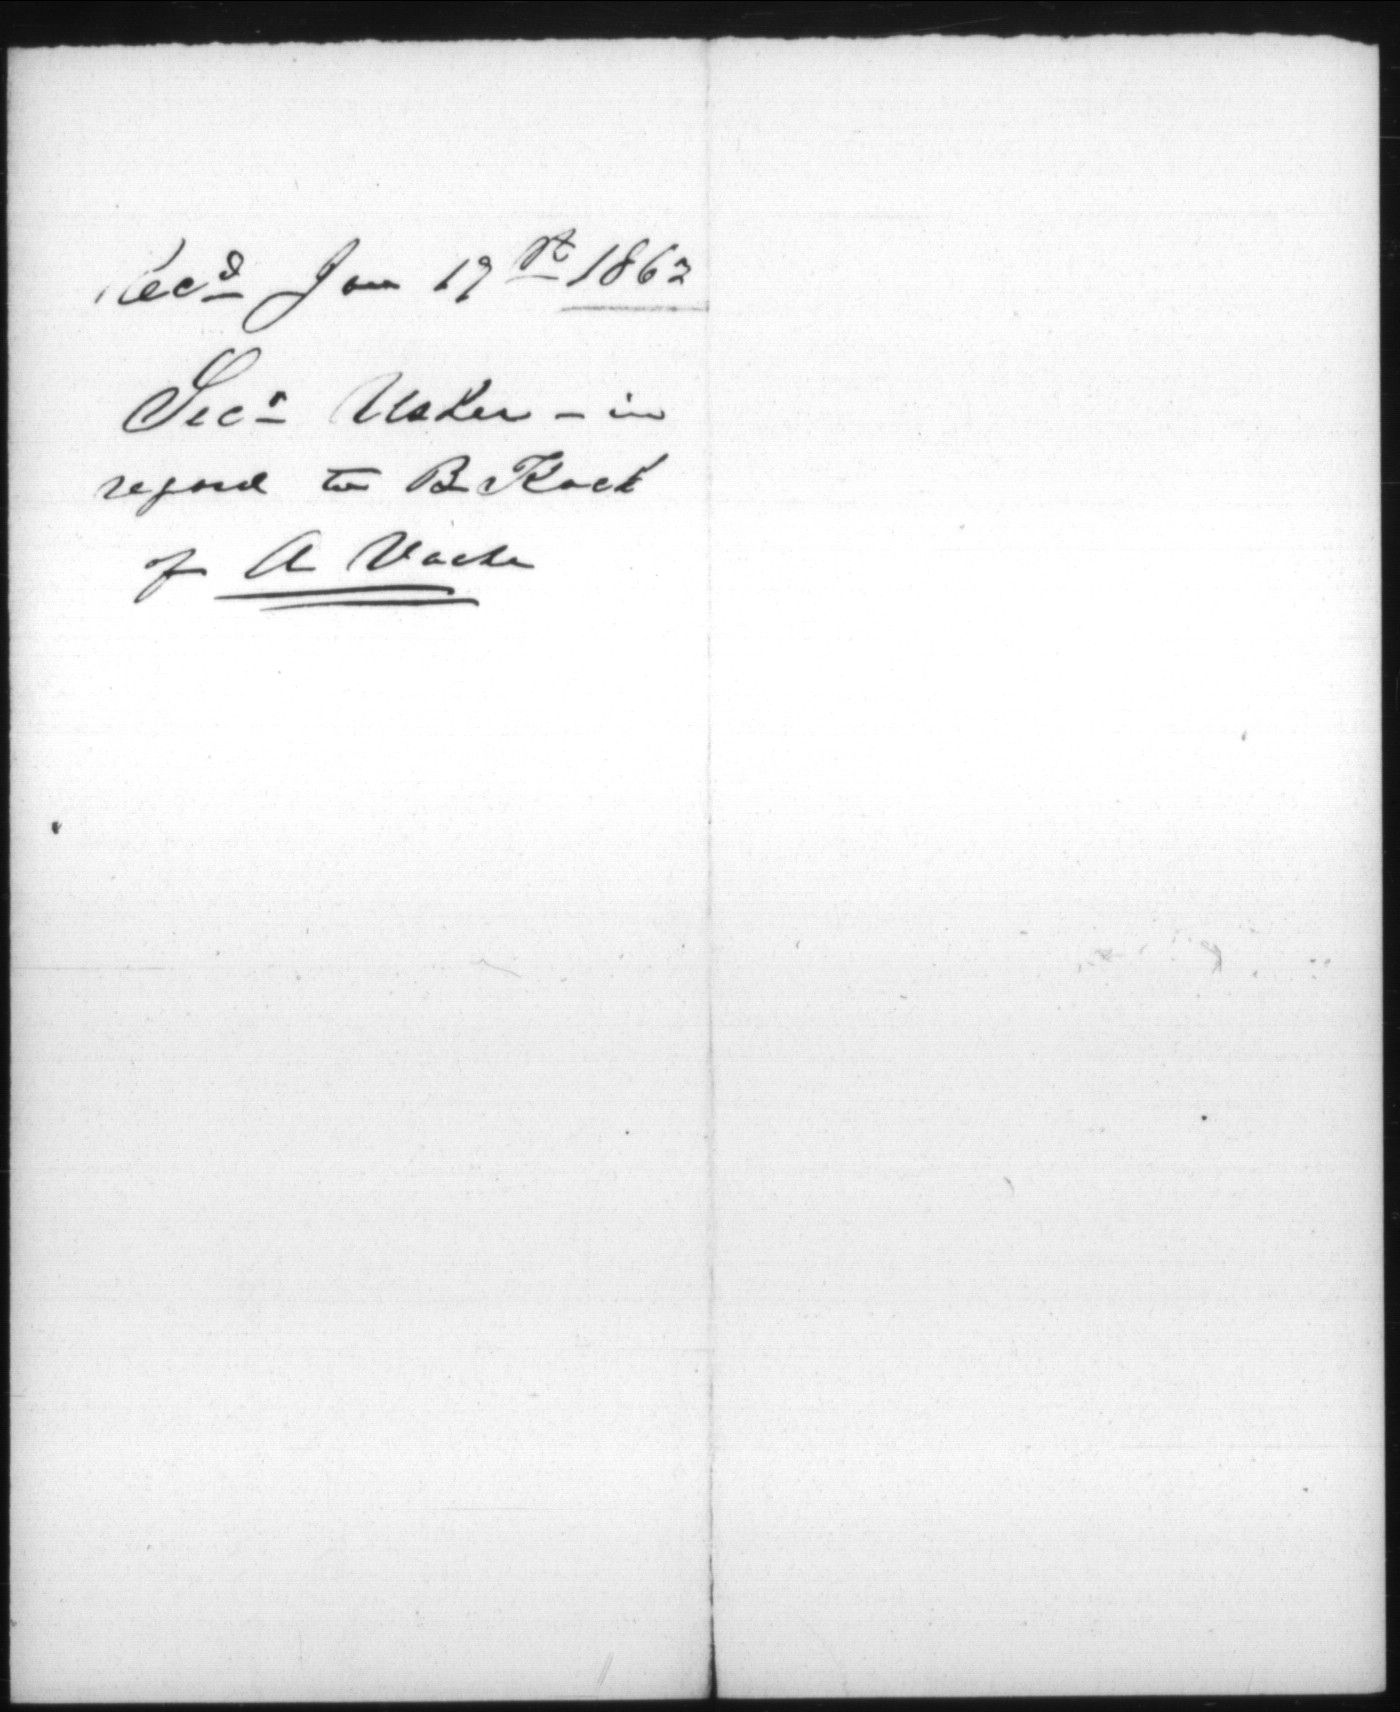 Recd Jan 17th 1862
Secr Usher – in
regard to B Kock
of A Vache